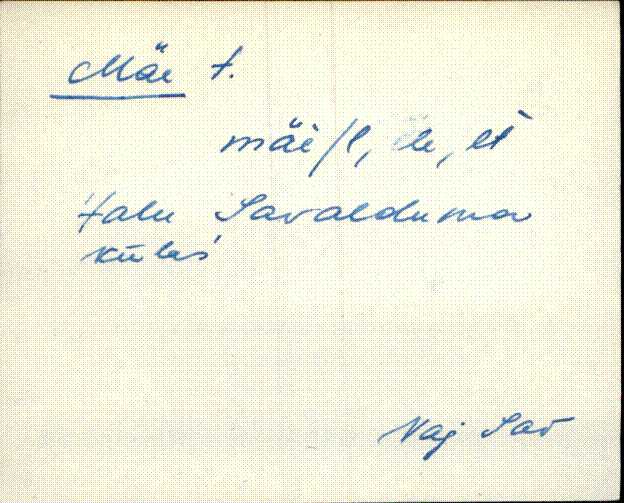 Mäe t.
mäè/l, le, lt
Talu Savalduma
külas
Vaj Sav